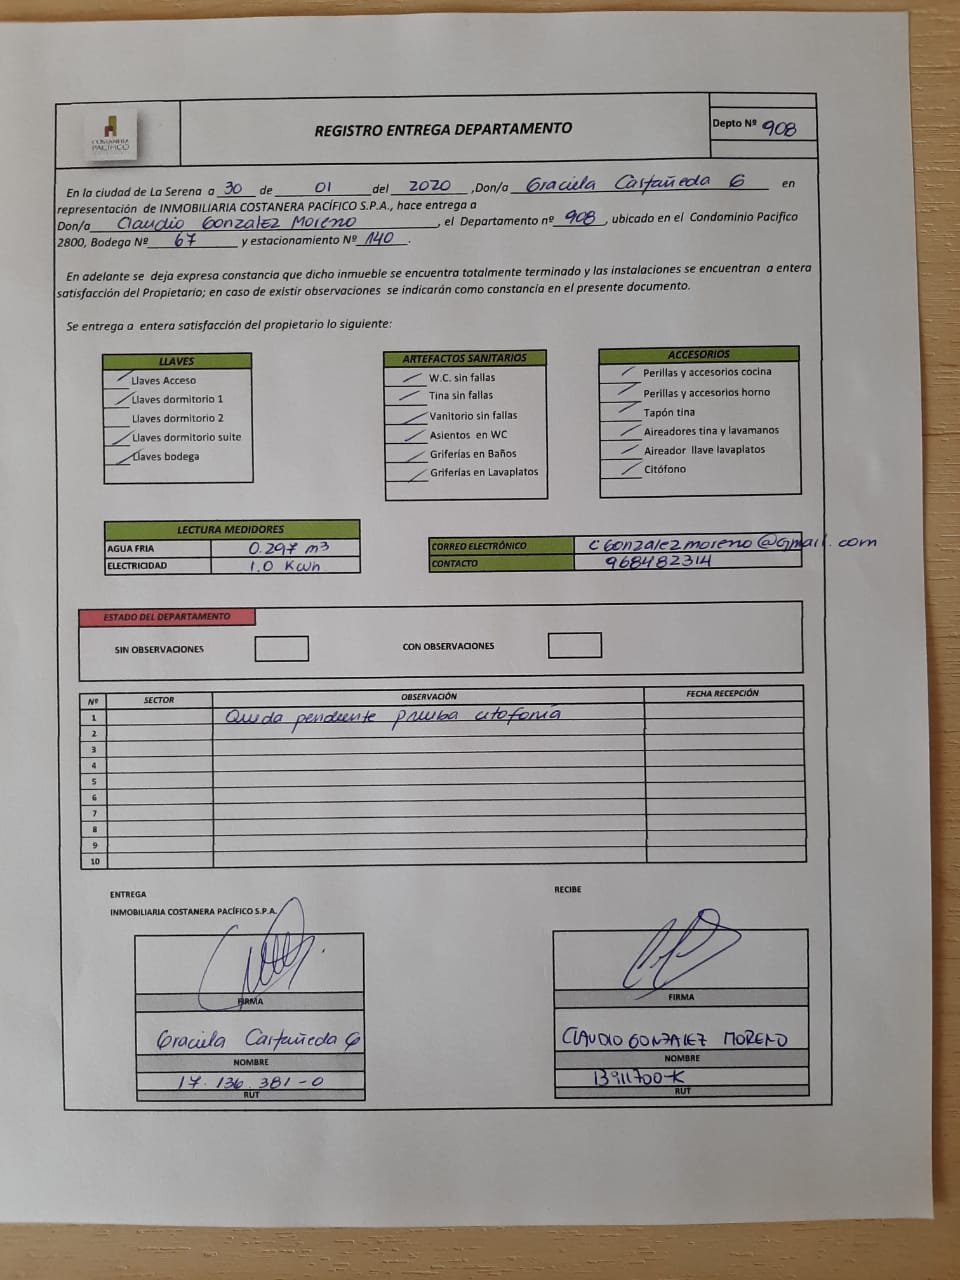 COSTANERA
PACÍFICO
REGISTRO ENTREGA DEPARTAMENTO
Depto Nº 908
En la ciudad de La Serena a 30 de 01 del 2020 ,Don/a Graciela Castañeda G en
representación de INMOBILIARIA COSTANERA PACÍFICO S.P.A., hace entrega a
Don/a Claudio Gonzalez Moreno , el Departamento nº 908 , ubicado en el Condominio Pacifico
2800, Bodega Nº 67 y estacionamiento Nº 140 .
En adelante se deja expresa constancia que dicho inmueble se encuentra totalmente terminado y las instalaciones se encuentran a entera
satisfacción del Propietario; en caso de existir observaciones se indicarán como constancia en el presente documento.
Se entrega a entera satisfacción del propietario lo siguiente:
LLAVES
Llaves Acceso
Llaves dormitorio 1
Llaves dormitorio 2
Llaves dormitorio suite
Llaves bodega
ARTEFACTOS SANITARIOS
W.C. sin fallas
Tina sin fallas
Vanitorio sin fallas
Asientos en WC
Griferías en Baños
Griferías en Lavaplatos
ACCESORIOS
Perillas y accesorios cocina
Perillas y accesorios horno
Tapón tina
Aireadores tina y lavamanos
Aireador llave lavaplatos
Citófono
LECTURA MEDIDORES
AGUA FRIA 0.297 m3
ELECTRICIDAD 1.0 Kwh
CORREO ELECTRÓNICO cGonzalezmoreno@gmail.com
CONTACTO 968482314
ESTADO DEL DEPARTAMENTO
SIN OBSERVACIONES
CON OBSERVACIONES
Nº SECTOR OBSERVACIÓN FECHA RECEPCIÓN
1 Queda pendiente prueba citofonia
2
3
4
5
6
7
8
9
10
ENTREGA
INMOBILIARIA COSTANERA PACÍFICO S.P.A.
FIRMA
Graciela Castañeda G
NOMBRE
17.136.381-0
RUT
RECIBE
FIRMA
CLAUDIO GONZALEZ MORENO
NOMBRE
13911700-K
RUT